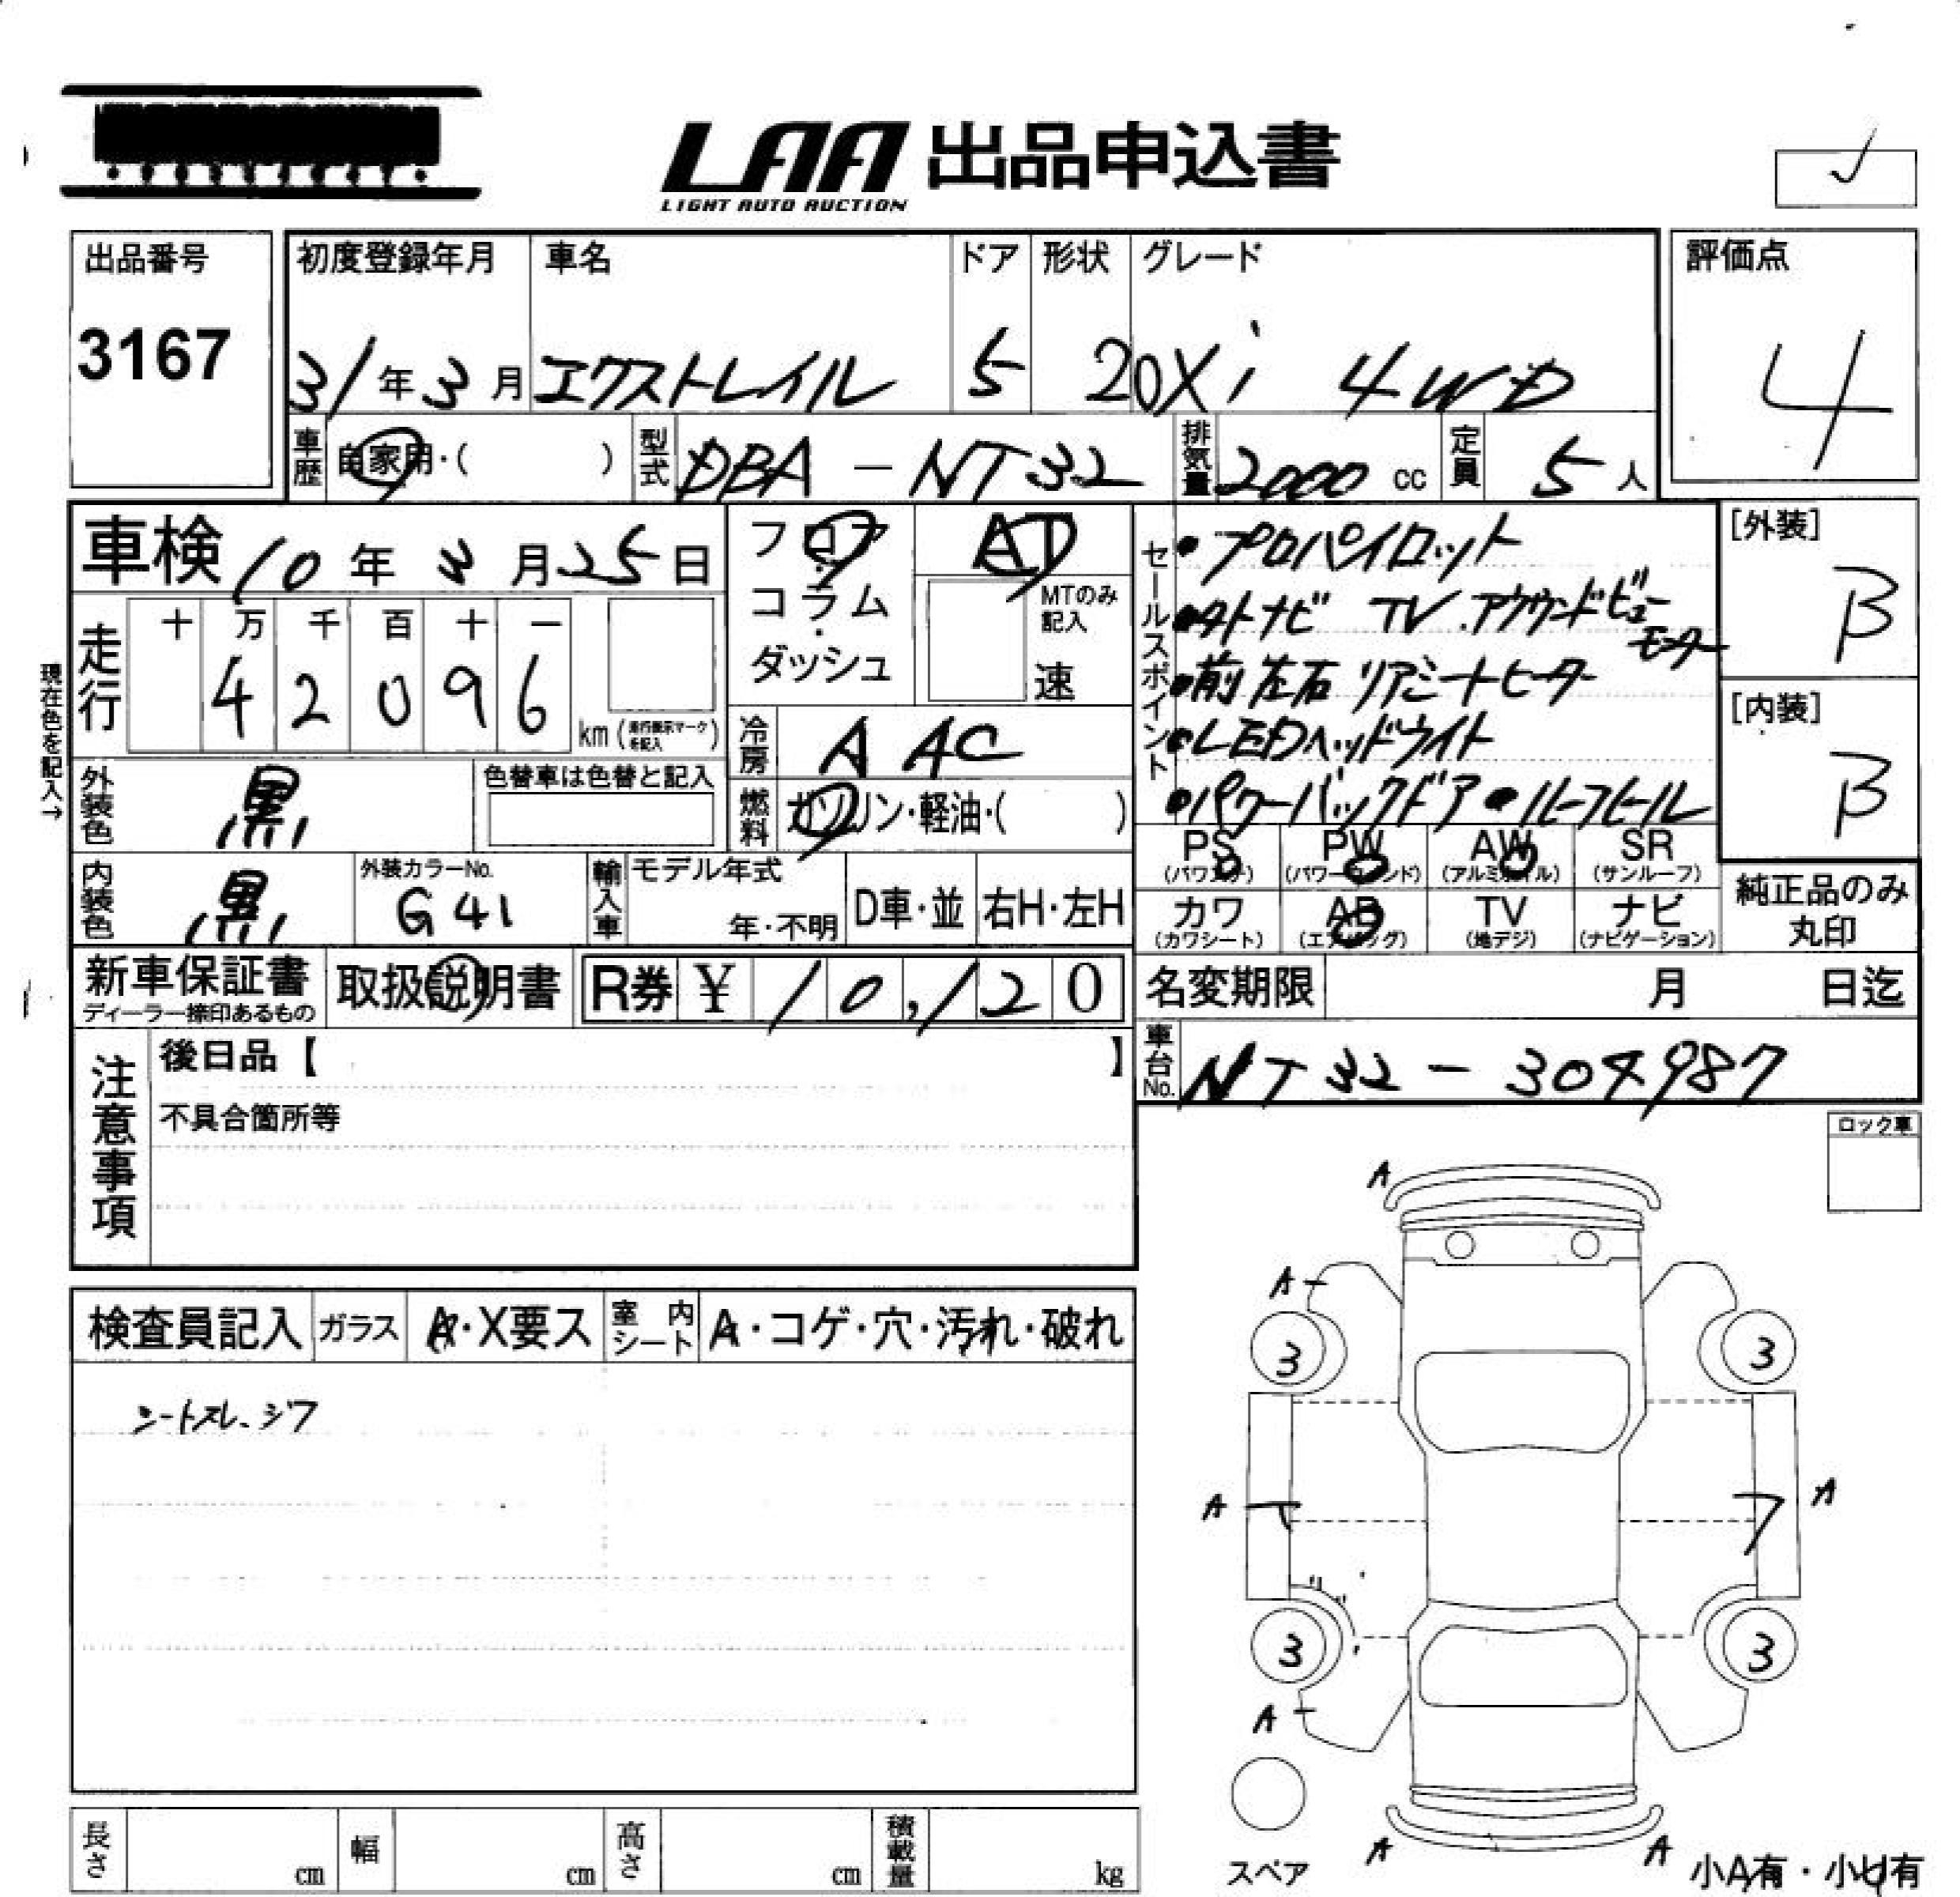 LAA 出品申込書
LIGHT AUTO AUCTION
出品番号
3167
初度登録年月
31年3月
車名
エクストレイル
ドア
5
形状
グレード
20Xi 4WD
評価点
4
車歴
自家用・( )
型式
DBA-NT32
排気量
2000 cc
定員
5人
車検 10年3月25日
フロア・コラム・ダッシュ
AT
MTのみ記入
速
走行
十 万 千 百 十 一
4 2 0 9 6
km (走行表示マークを記入)
現在色を記入→
冷房
AAC
燃料
ガソリン・軽油・( )
外装色
黒
色替車は色替と記入
内装色
黒
外装カラーNo.
G41
輸入車
モデル年式
年・不明
D車・並
右H・左H
セールスポイント
・プロパイロット
・外ナビ TV.アラウンドビューモニター
・前左右 リアシートヒーター
・LEDヘッドライト
・パワーバックドア ・ルーフレール
[外装]
B
[内装]
B
PS
(パワステ)
PW
(パワーウインド)
AW
(アルミホイル)
SR
(サンルーフ)
カワ
(カワシート)
AB
(エアバッグ)
TV
(地デジ)
ナビ
(ナビゲーション)
純正品のみ
丸印
新車保証書
ディーラー捺印あるもの
取扱説明書
R券 ¥ 10,120
名変期限 月 日迄
車台No.
NT32-304987
注意事項
後日品【 】
不具合箇所等
ロック車
検査員記入
ガラス
A・X要ス
室内シート
A・コゲ・穴・汚れ・破れ
シートスレ、シワ
A
A
3
3
A
A
3
3
A
A
A
スペア
小A有・小U有
長さ cm
幅 cm
高さ cm
積載量 kg